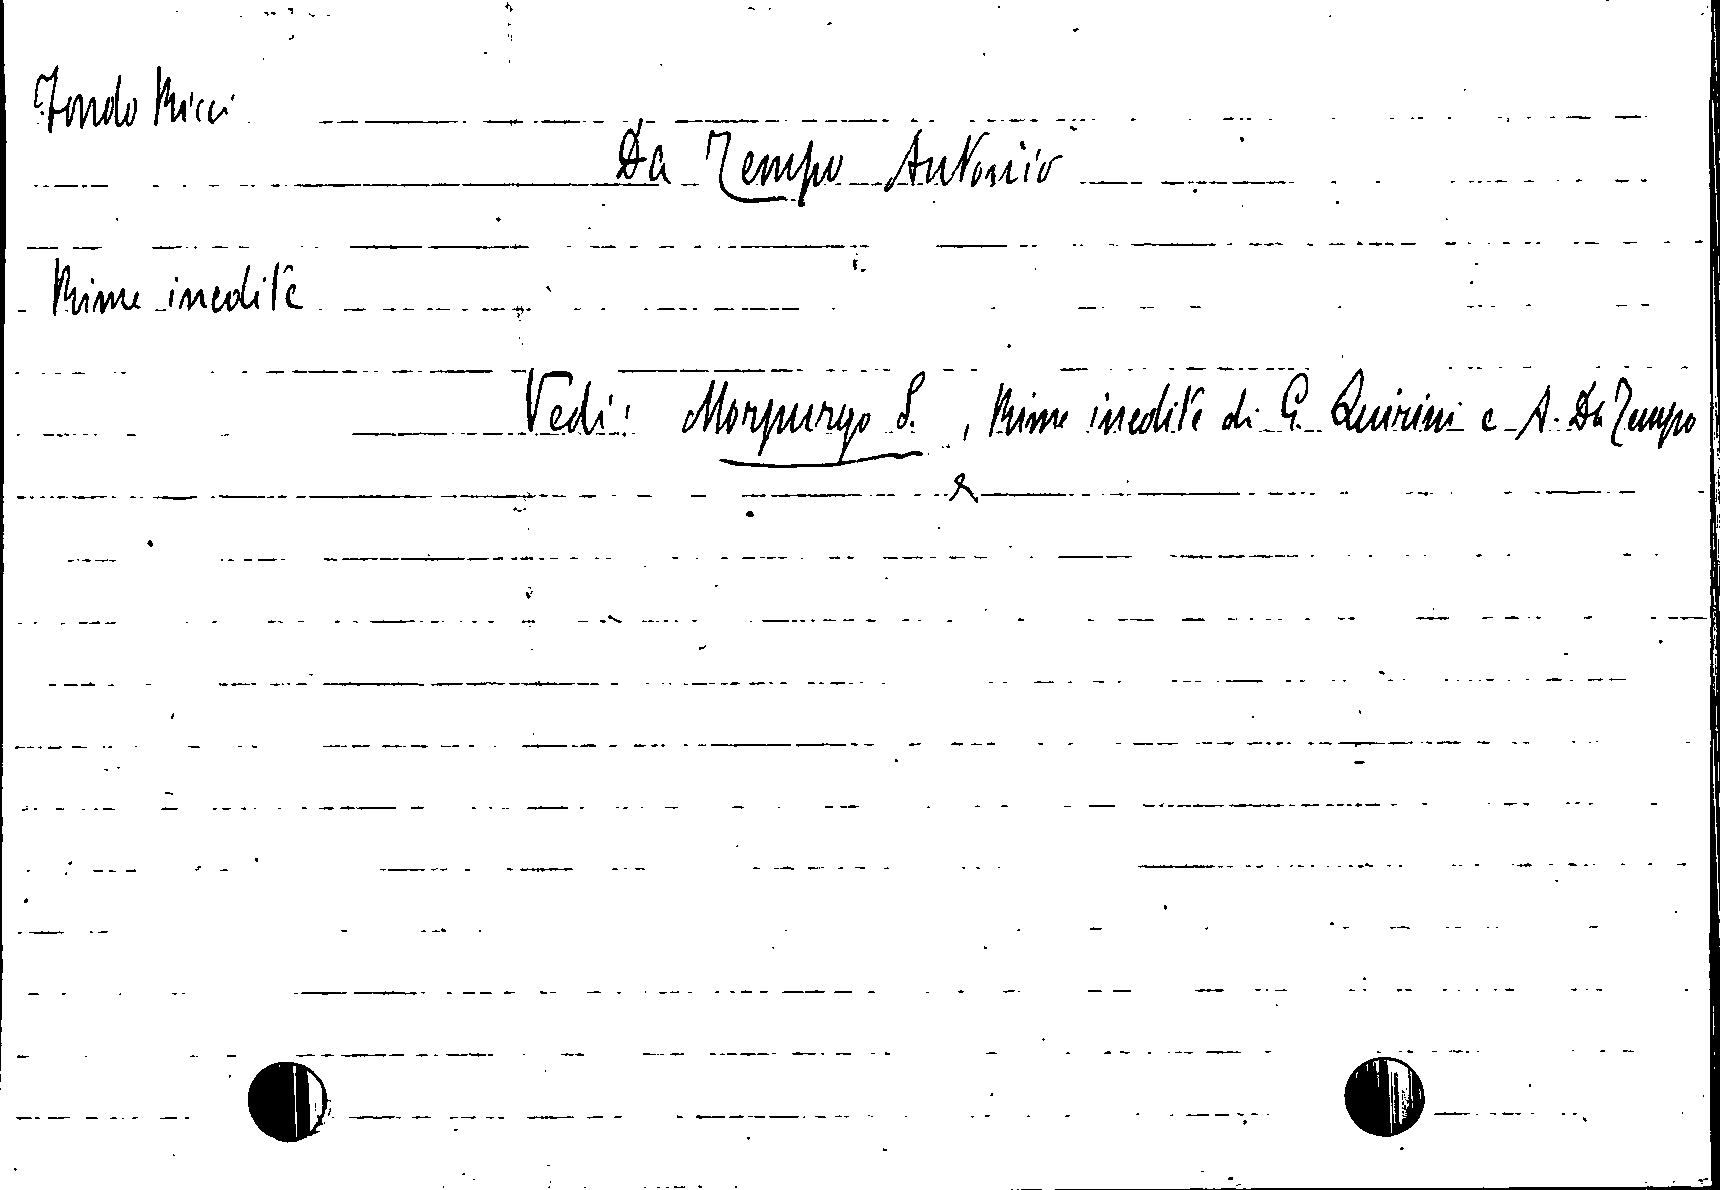 Fondo Ricci
Da Tempo Antonio
Rime inedite
Vedi: Morpurgo S., Rime inedite di G. Quirini e A. Da Tempo